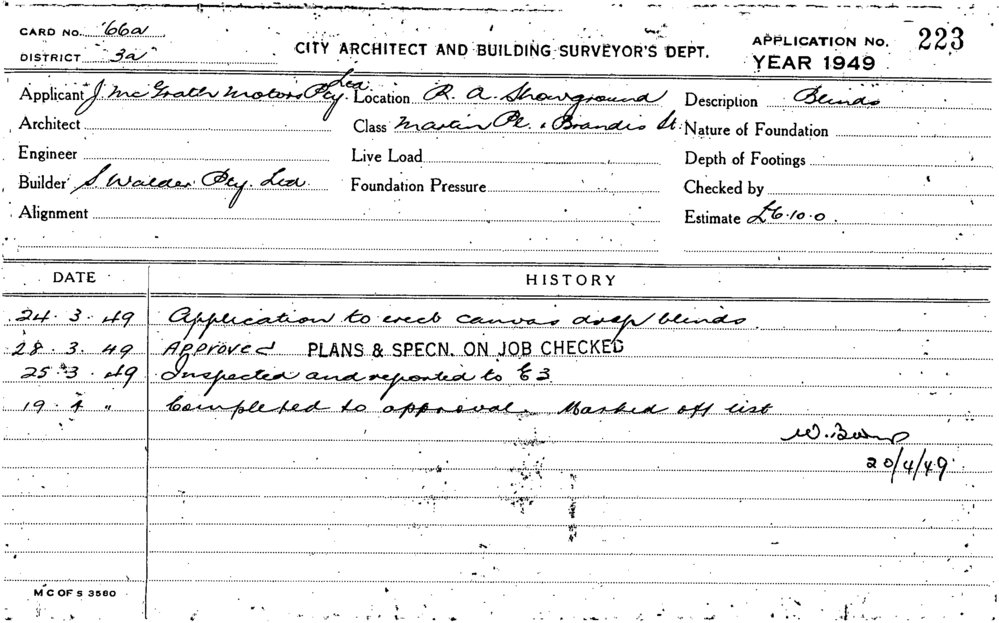 CARD NO. 66a
DISTRICT 3a
CITY ARCHITECT AND BUILDING SURVEYOR'S DEPT.
APPLICATION NO. 223
YEAR 1949
Applicant J. McGrath Motors Pty. Ltd Location R. A. Showground Description Blinds
Architect Class Martin Pl. & Brandis St. Nature of Foundation
Engineer Live Load Depth of Footings
Builder S Walder Pty. Ltd. Foundation Pressure Checked by
Alignment Estimate £6.10.0
DATE HISTORY
24.3.49 Application to erect canvas drop blinds
28.3.49 Approved PLANS & SPECN. ON JOB CHECKED
25.3.49 Inspected and reported to E3
19.4 " Completed to approval. Marked off list
20/4/49
M C OF S 3580